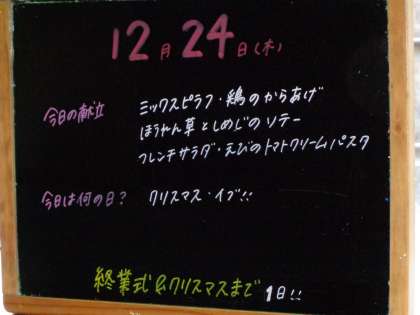 12月24日(木)
今日の献立 ミックスピラフ・鶏のからあげ
ほうれん草としめじのソテー
フレンチサラダ・えびのトマトクリームパスタ
今日は何の日? クリスマス・イブ!!
終業式&クリスマスまで 1日!!